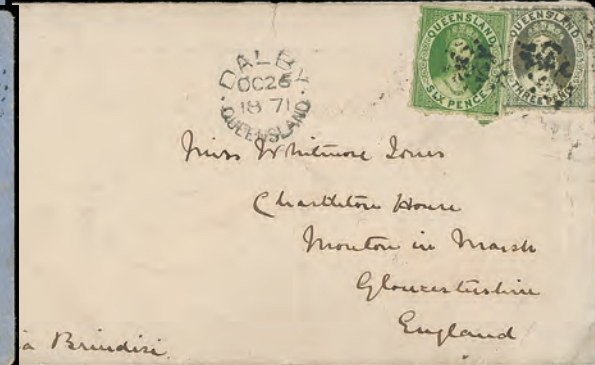 DALBY
OC 26
18 71
QUEENSLAND
QUEENSLAND
SIX PENCE
QUEENSLAND
THREE PENCE
Miss Whitmore Jones
Chastleton House
Moreton in Marsh
Gloucestershire
England
a Brindisi